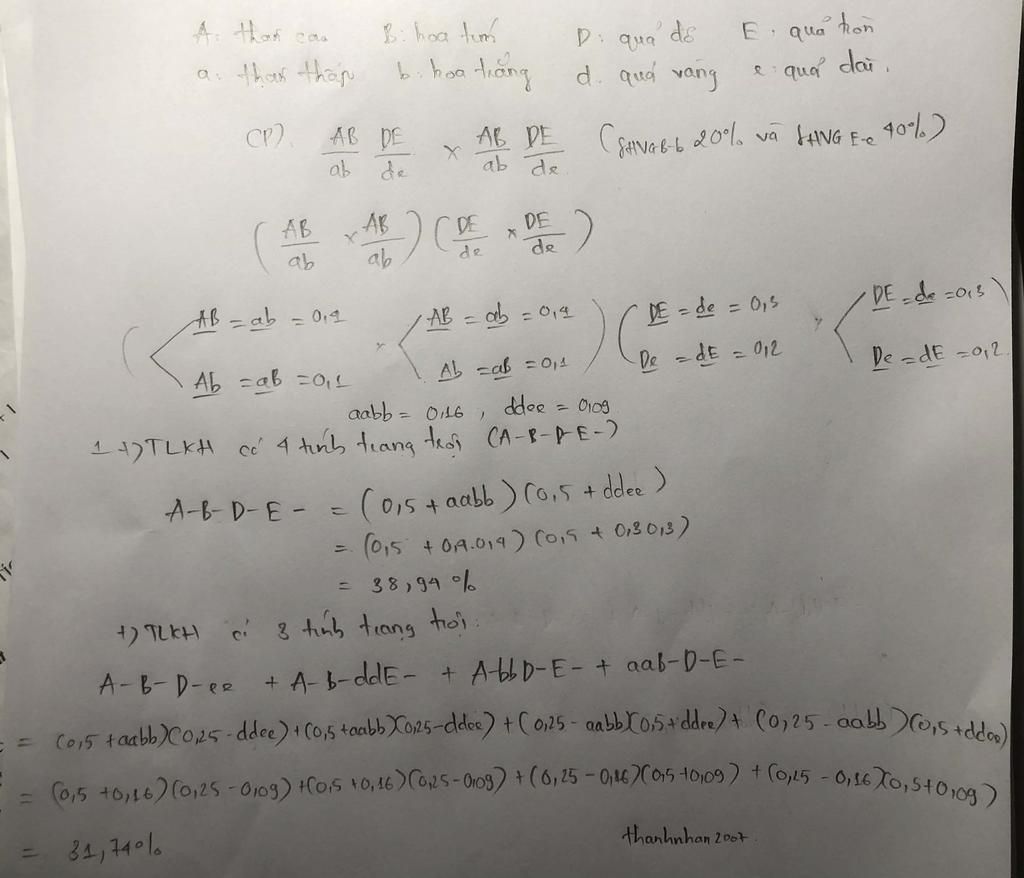 A: thân cao B: hoa tím D: quả đỏ E: quả tròn
a: thân thấp b: hoa trắng d. quả vàng e: quả dài.
(P). AB/ab DE/de x AB/ab DE/de (fHVG B-b 20% và fHVG E-e 40%)
(AB/ab x AB/ab) (DE/de x DE/de)
( AB = ab = 0,4 x AB = ab = 0,4 ) ( DE = de = 0,3 x DE = de = 0,3 )
Ab = aB = 0,1 Ab = aB = 0,1 De = dE = 0,2 De = dE = 0,2
aabb = 0,16 , ddee = 0,09
1 +) TLKH có 4 tính trạng trội (A-B-D-E-)
A-B-D-E- = (0,5 + aabb) (0,5 + ddee)
= (0,5 + 0,4.0,4) (0,5 + 0,3 0,3)
= 38,94 %
+) TLKH có 3 tính trạng trội:
A-B-D-ee + A-B-ddE- + A-bbD-E- + aaB-D-E-
= (0,5 + aabb)(0,25 - ddee) + (0,5 + aabb)(0,25 - ddee) + (0,25 - aabb)(0,5 + ddee) + (0,25 - aabb)(0,5 + ddee)
= (0,5 + 0,16)(0,25 - 0,09) + (0,5 + 0,16)(0,25 - 0,09) + (0,25 - 0,16)(0,5 + 0,09) + (0,25 - 0,16)(0,5 + 0,09)
= 31,74%
thanhnhan2007